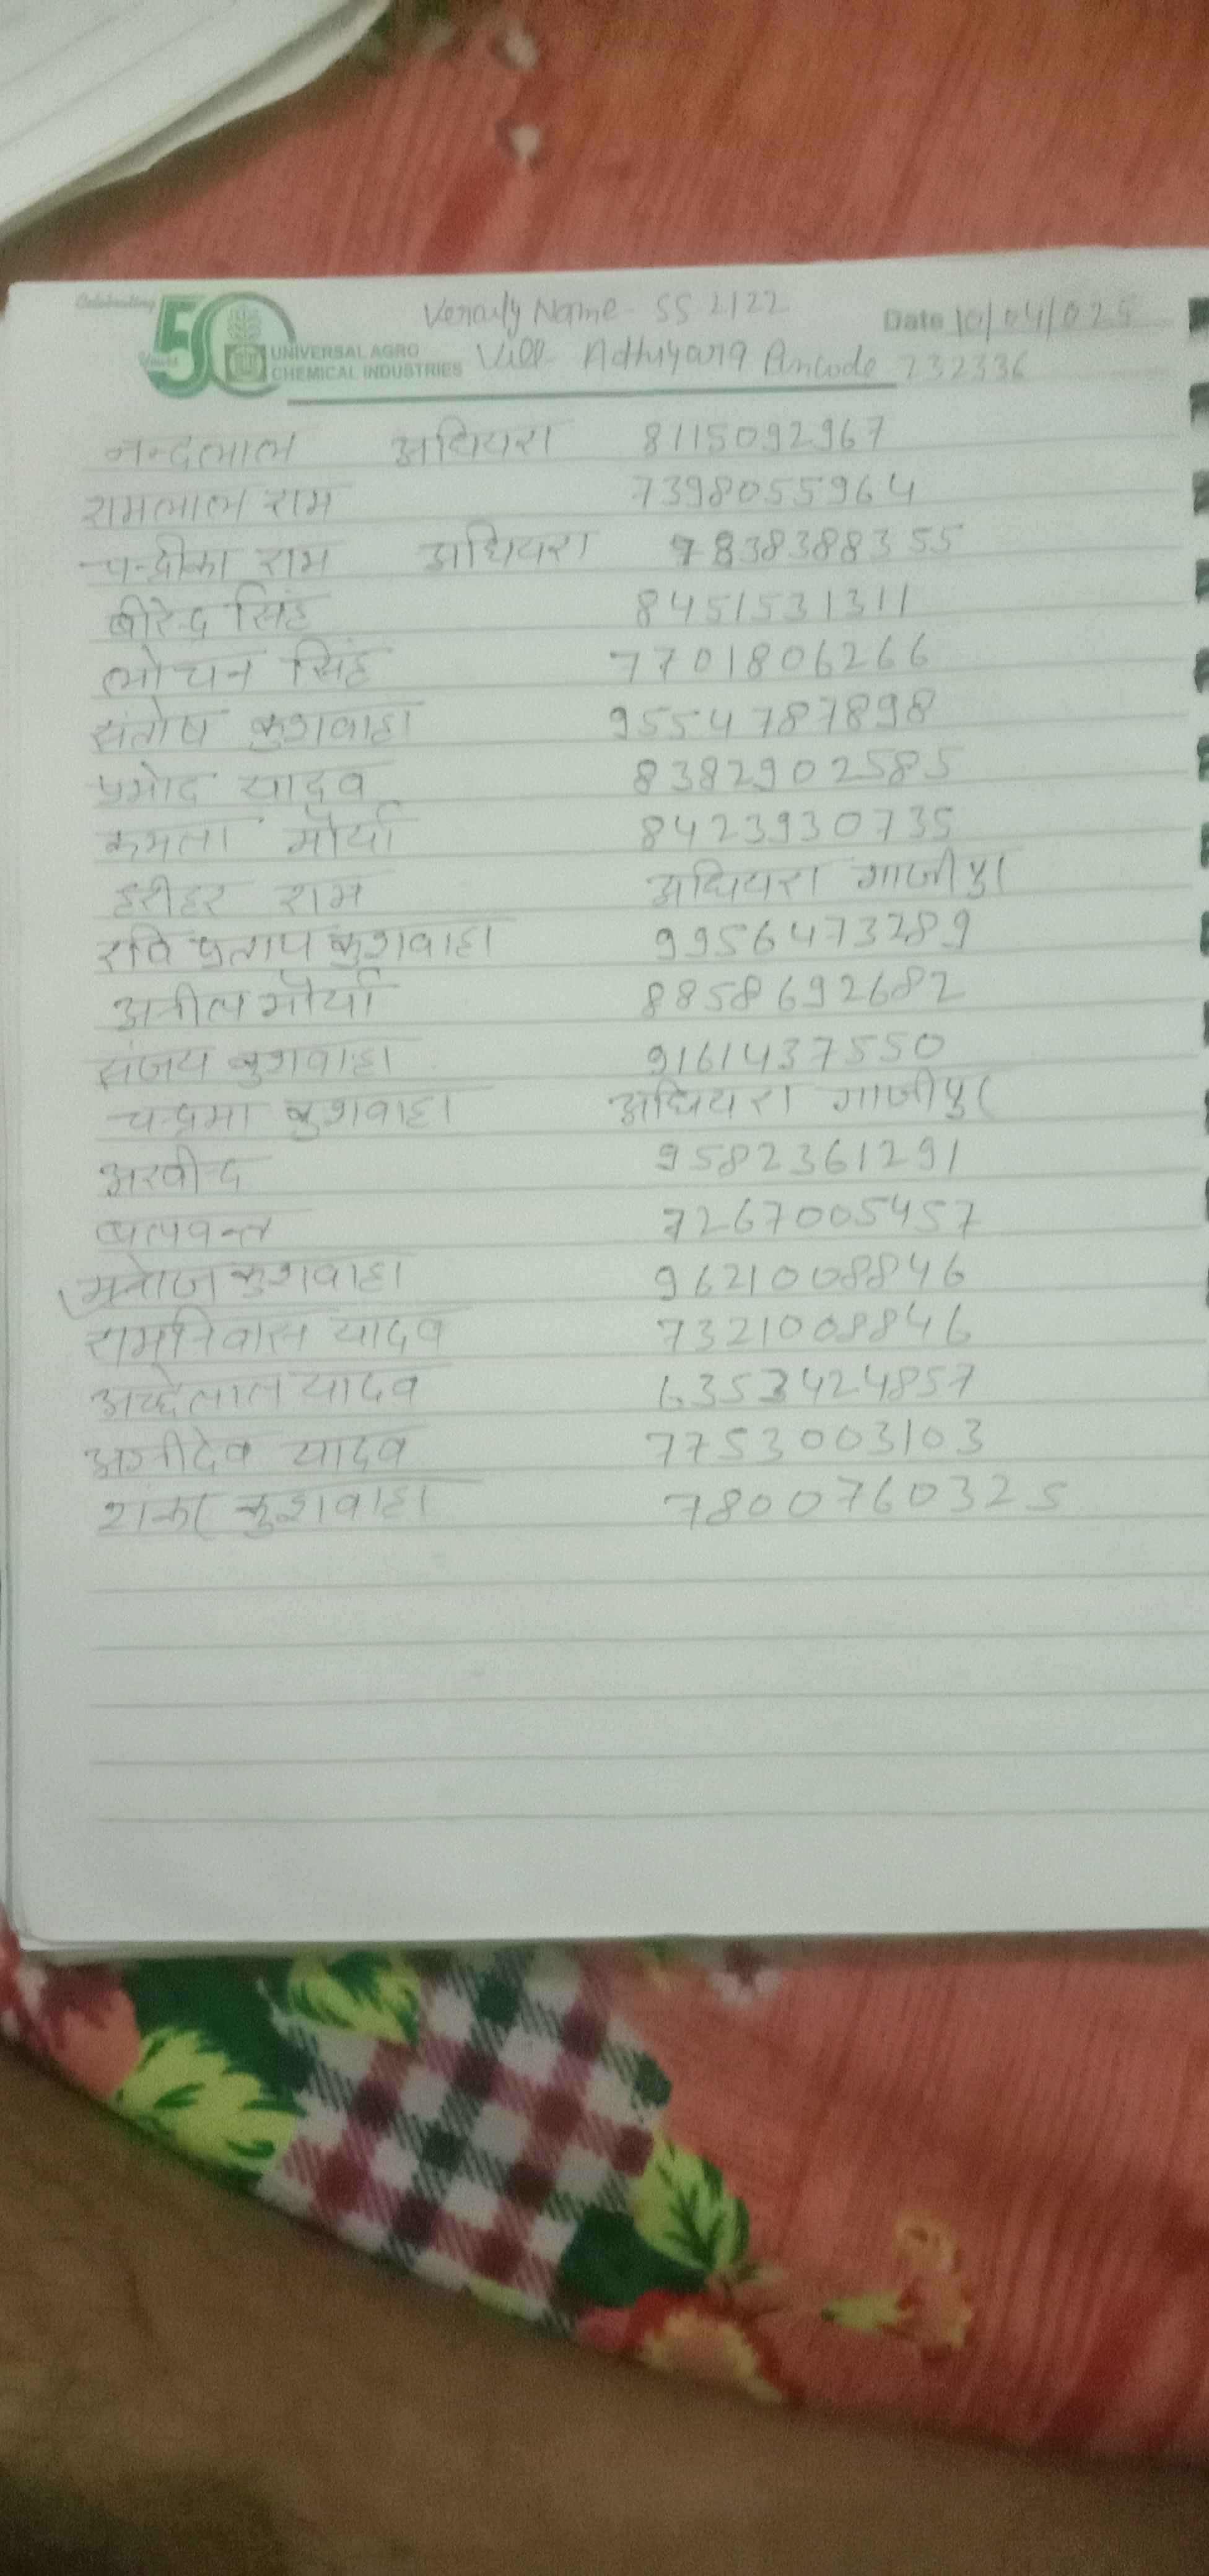 Celebrating
50
Years
UNIVERSAL AGRO
CHEMICAL INDUSTRIES
Name - SS 2122
Date 10/04/025
Vill - Adhiyara Pincode 232336
नन्दलाल अधियरा 8115092967
रामलाल राम 7398055964
चन्द्रीका राम अधियरा 7838388355
बीरेन्द्र सिंह 8451531311
लोचन सिंह 7701806266
संतोष कुशवाहा 9554787898
प्रमोद यादव 8382902585
कमला मौर्या 8423930735
हरीहर राम अधियरा गाजीपुर
रवि प्रताप कुशवाहा 9956473289
अनील मौर्या 8858692682
संजय कुशवाहा 9161437550
चन्द्रमा कुशवाहा अधियरा गाजीपुर
अरवीन्द 9582361291
बलवन्त 7267005457
मनोज कुशवाहा 9621008846
रामनिवास यादव 7321008846
अच्छेलाल यादव 6353424857
अग्नीदेव यादव 7753003103
शंकर कुशवाहा 7800760325